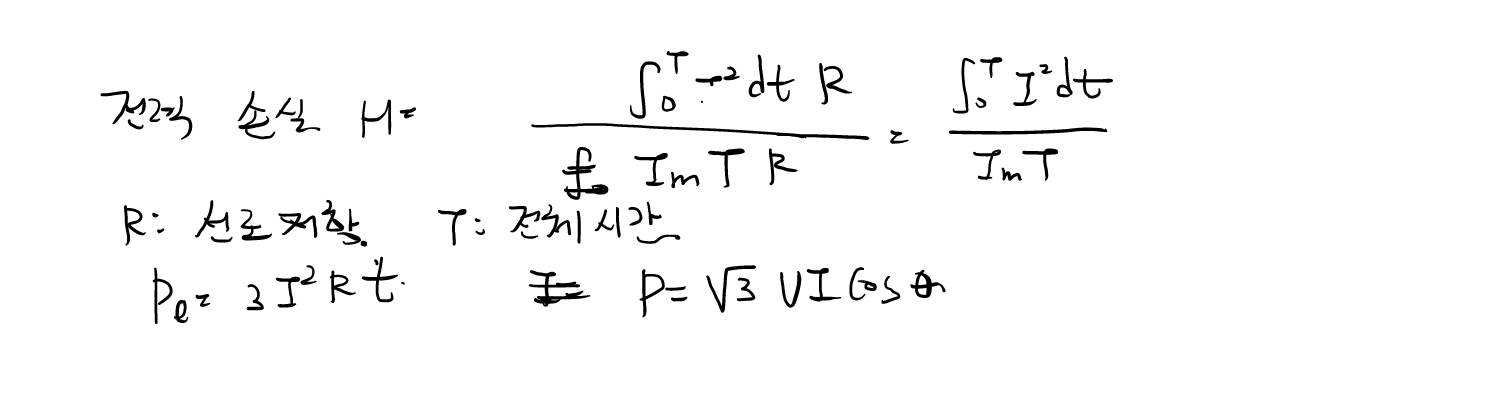 전력 손실 H= ∫₀ᵀ I² dt R / I_m T R = ∫₀ᵀ I² dt / I_m T
R: 선로저항. T: 전체시간
P_e = 3 I² R t. P = √3 VI Cos θ